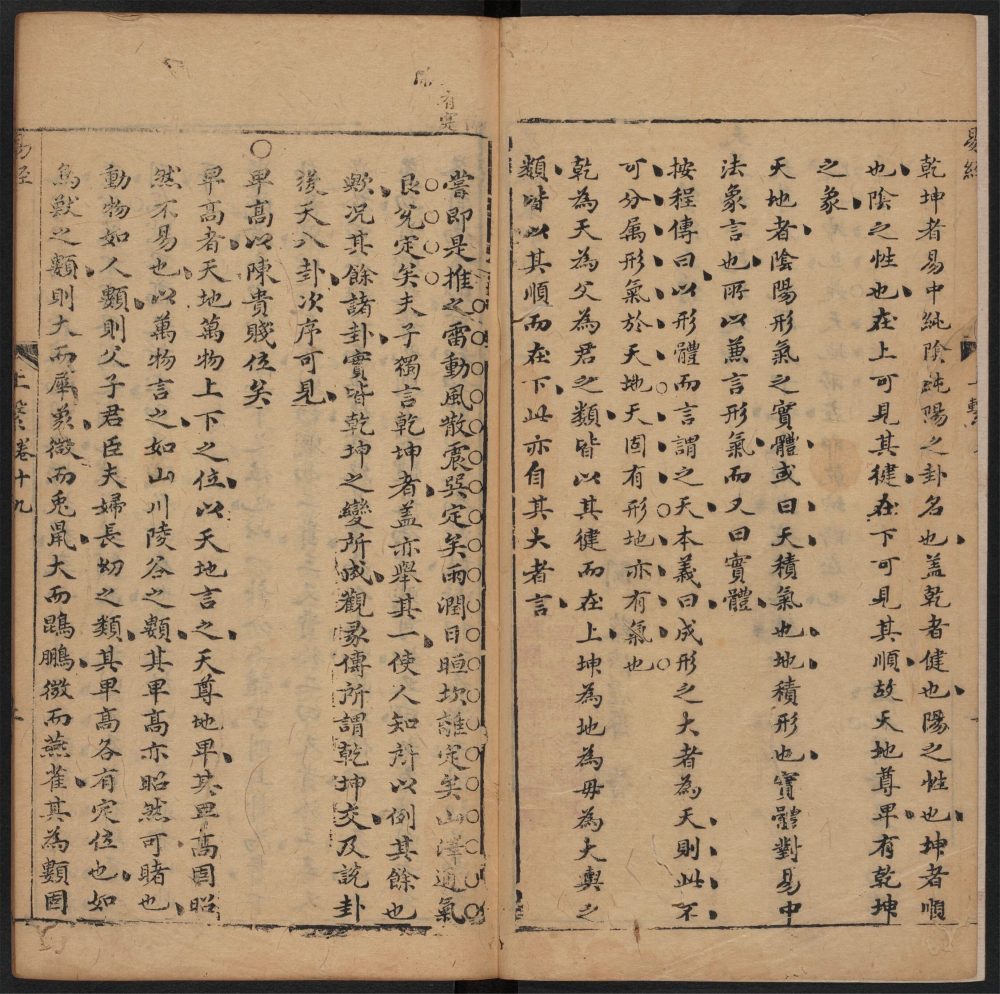 易經
乾坤者易中純陰純陽之卦名也盖乾者健也陽之性也坤者順
也陰之性也在上可見其健在下可見其順故天地尊卑有乾坤
之象
天地者陰陽形氣之實體或曰天積氣也地積形也實體對易中
法象言也所以兼言形氣而又曰實體
按程傳曰以形體而言謂之天本義曰成形之大者為天則此不
可分属形氣於天地天固有形地亦有氣也
乾為天為父為君之類皆以其健而在上坤為地為毋為大輿之
類皆以其順而在下此亦自其大者言
嘗即是推之雷動風散震巽定矣雨潤日晅坎離定矣山澤通氣
艮兌定矣夫子獨言乾坤者盖亦舉其一使人知所以例其餘也
歟况其餘諸卦實皆乾坤之變所成觀彖傳所謂乾坤交及說卦
後天八卦次序可見
○卑高以陳貴賤位矣
卑高者天地萬物上下之位以天地言之天尊地卑其卑高固昭
然不易也以萬物言之如山川陵谷之類其卑高亦昭然可睹也
動物如人類則父子君臣夫婦長幼之類其卑高各有定位也如
鳥獸之類則大而犀象微而兎鼠大而鵾鵬微而燕雀其為類固
易經
上繫卷十九